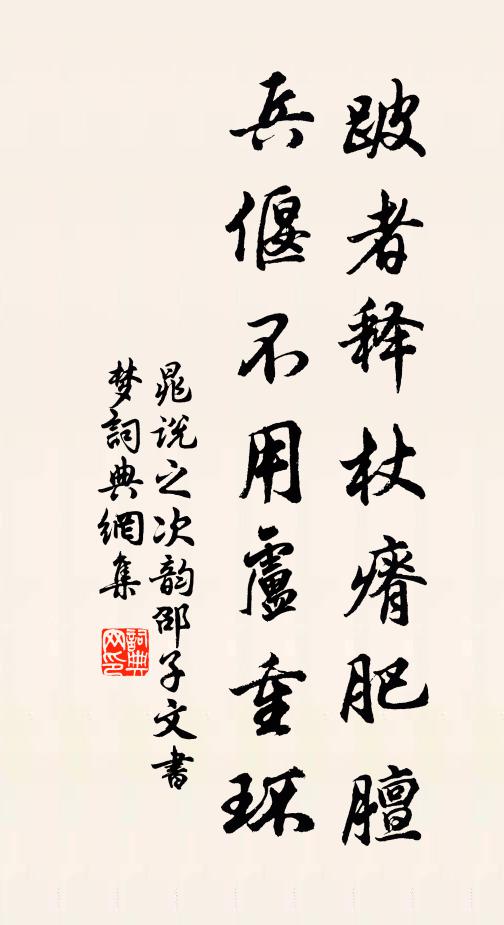 跛者释杖瘠肥膻
兵偃不用卢重环
晁说之次韵邵子文書
梦詞典網集
詞典网印